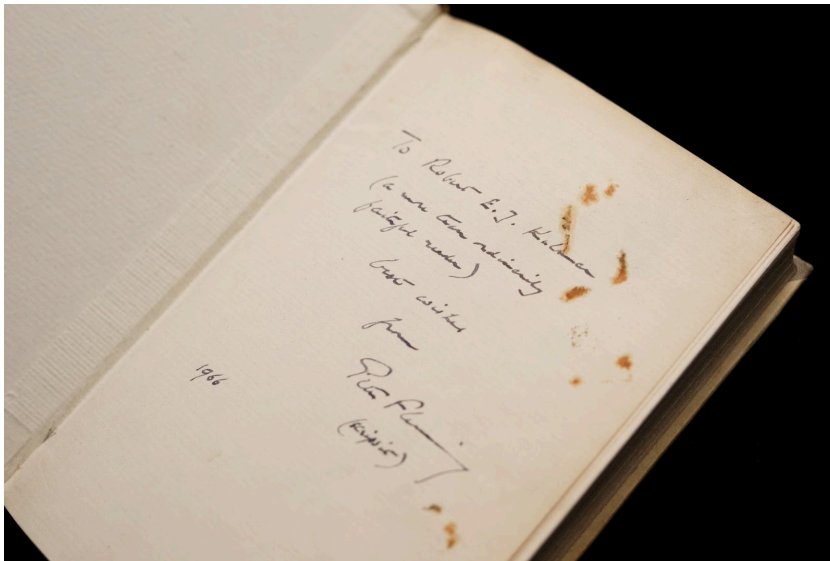 To Robert E.J.
(a more than ordinarily
faithful reader)
best wishes
from
Peter Fleming
(Strix)
1966